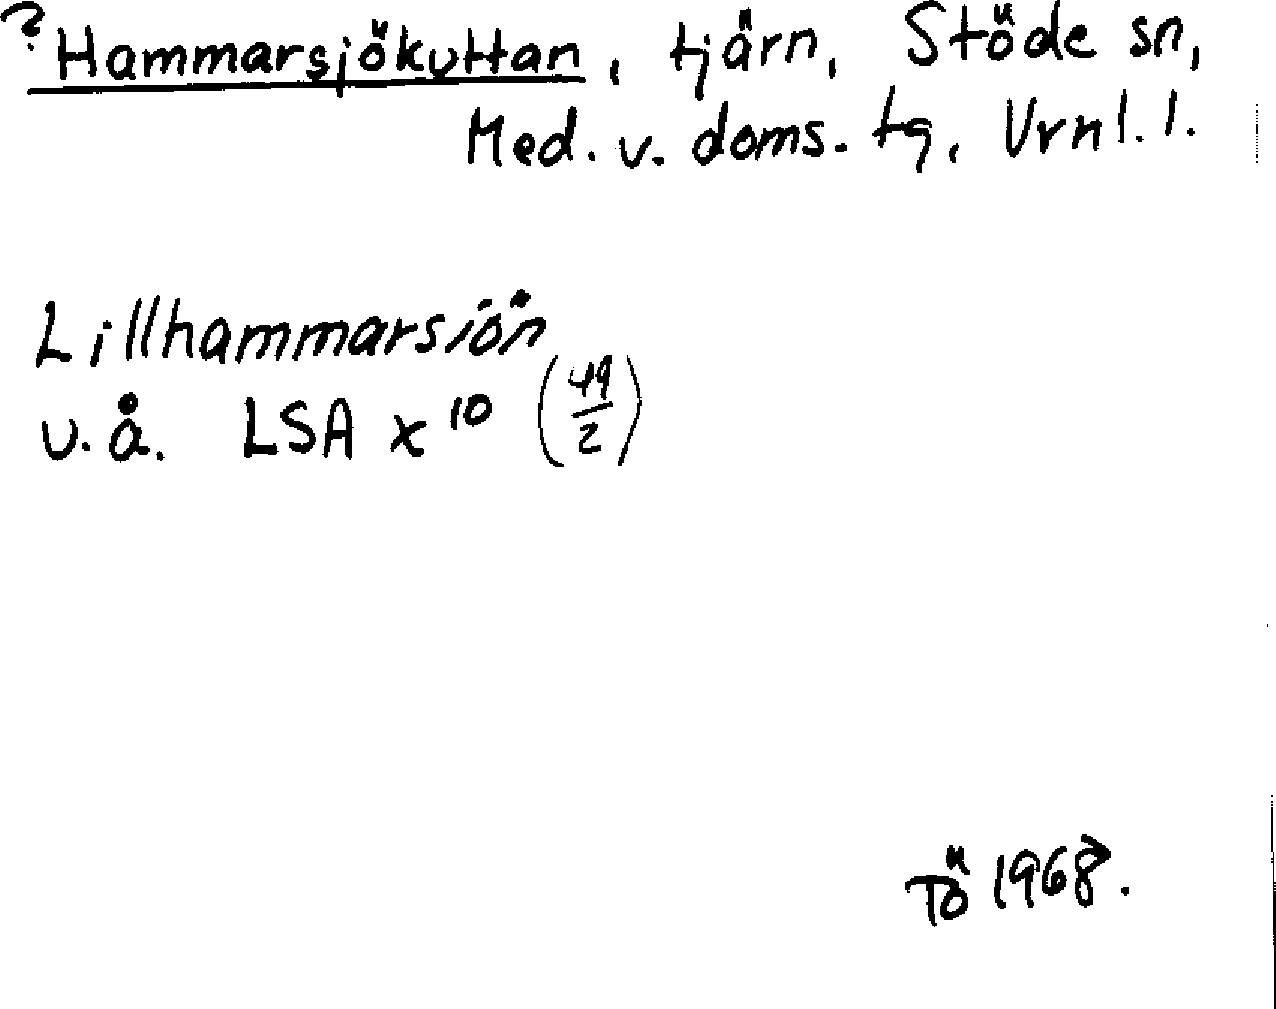 ? Hammarsjökuttan, tjärn, Stöde sn,
Med. v. doms. tg, Vrnl. l.
Lillhammarsjön
u. å. LSA x 10 (49/2)
Tö 1968.